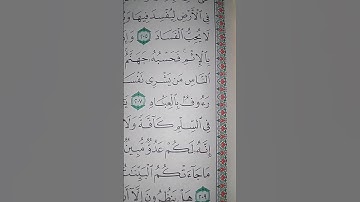 فِي الْأَرْضِ لِيُفْسِدَ فِيهَا وَ
لَا يُحِبُّ الْفَسَادَ ٢٠٥ وَإِ
بِالْإِثْمِ فَحَسْبُهُ جَهَنَّمُ
النَّاسِ مَن يَشْرِي نَفْسَ
رَءُوفٌ بِالْعِبَادِ ٢٠٧ يَ
فِي السِّلْمِ كَافَّةً وَلَا
إِنَّهُ لَكُمْ عَدُوٌّ مُّبِينٌ
مَا جَاءَتْكُمُ الْبَيِّنَاتُ
٢٠٩ هَلْ يَنظُرُونَ إِلَّا أَن